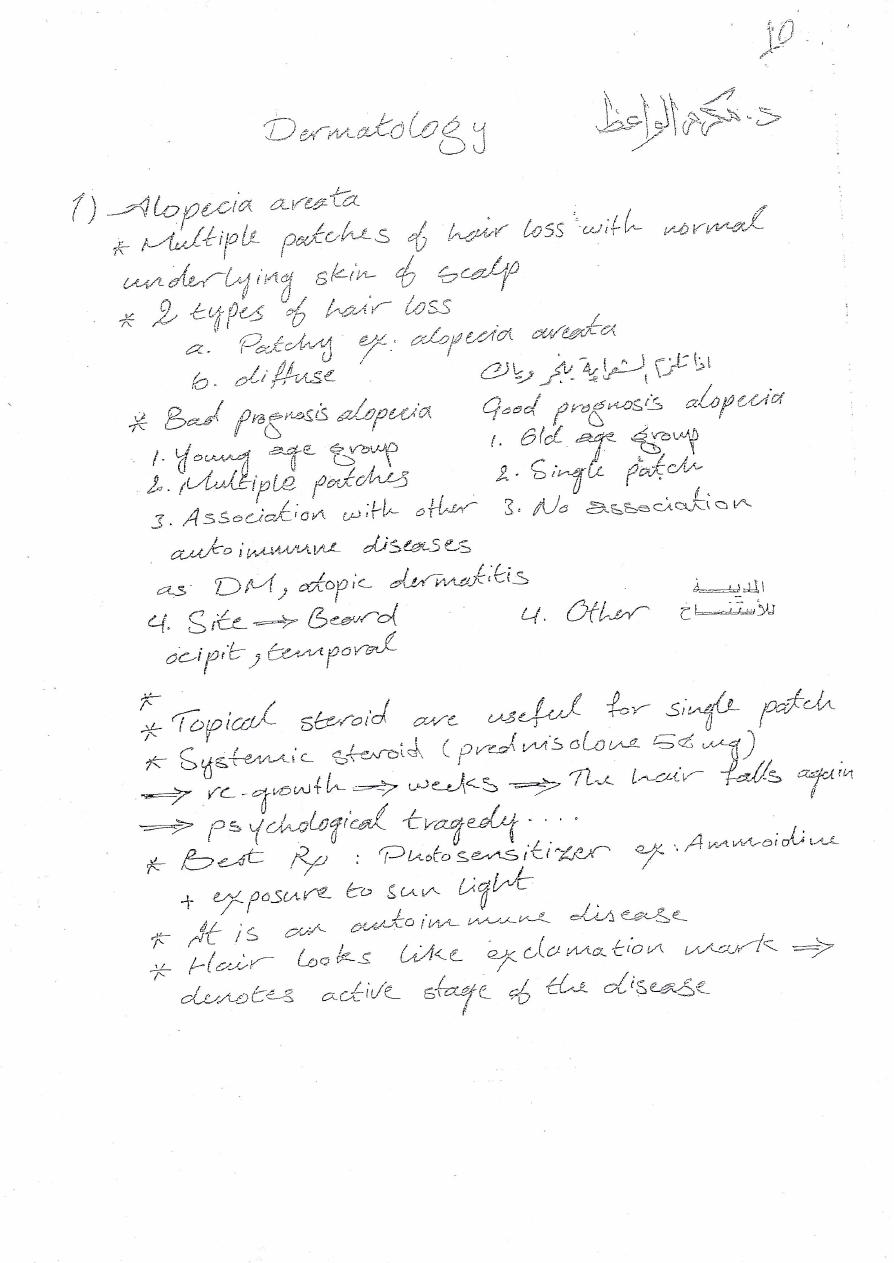 10
Dermatology د. مكرم الواعظ
1) Alopecia areata
* Multiple patches of hair loss with normal
underlying skin of scalp
* 2 types of hair loss
a. Patchy ex. alopecia areata
b. diffuse اذا تلزم الشعراية
* Bad prognosis alopecia Good prognosis alopecia
1. Young age group 1. Old age group
2. Multiple patches 2. Single patch
3. Association with other 3. No association
autoimmune diseases
as DM, atopic dermatitis المدينة
4. Site → Beard 4. Other للأستنساخ
ocipit, temporal
*
* Topical steroid are useful for single patch
* Systemic steroid (prednisolone mg)
⇒ re.growth ⇒ weeks ⇒ The hair falls again
⇒ psychological tragedy....
* Best Rp : Photosensitizer ex: Ammoidine
+ exposure to sun light
* It is an autoimmune disease
* Hair looks like exclamation mark ⇒
denotes active stage of the disease